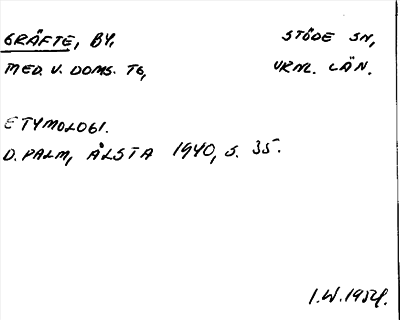 GRÄFTE, BY. STÖDE SN,
MED. V. DOMS. TG, VRNL. LÄN.
ETYMOLOGI.
D. PALM, ÅLSTA 1940, S. 35.
I.W. 1954.